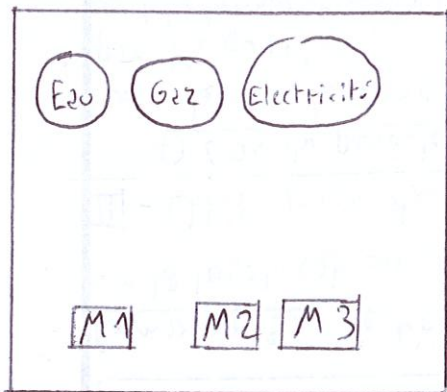 Eau Gaz Electricité
M1 M2 M3